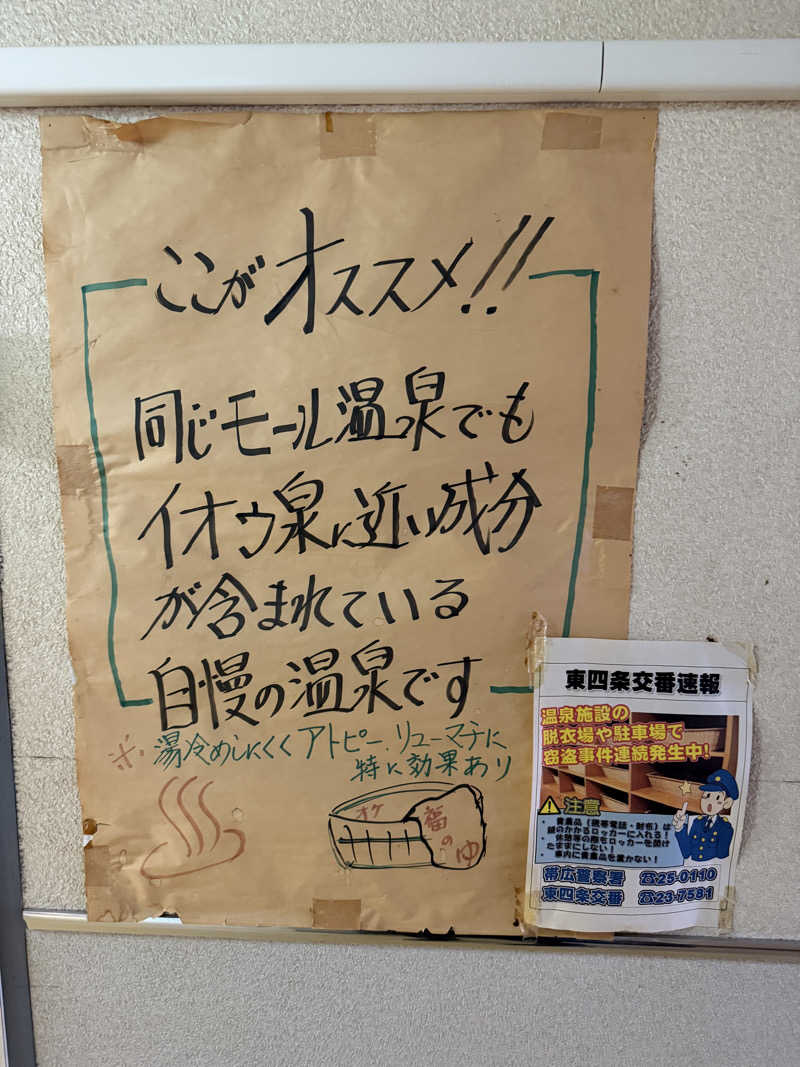 ここがオススメ!!
同じモール温泉でも
イオウ泉に近い成分
が含まれている
自慢の温泉です
※.湯冷めしにくくアトピー、リューマチに
特に効果あり
オケ
福のゆ
東四条交番速報
温泉施設の
脱衣場や駐車場で
窃盗事件連続発生中!
注意
・貴重品(携帯電話・財布)は
鍵のかかるロッカーに入れる!
・休憩等の際もロッカーを開け
たままにしない!
・車内に貴重品を置かない!
帯広警察署 ☎25-0110
東四条交番 ☎23-7581